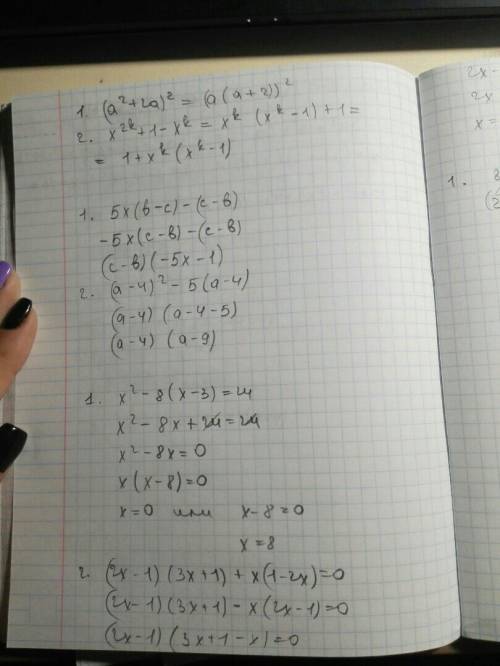 1. (a²+2a)² = (a(a+2))²
2. x²ᵏ+1-xᵏ = xᵏ (xᵏ-1)+1=
= 1+xᵏ(xᵏ-1)
1. 5x(в-c)-(c-в)
-5x(c-в)-(c-в)
(c-в)(-5x-1)
2. (a-4)²-5(a-4)
(a-4) (a-4-5)
(a-4) (a-9)
1. x²-8(x-3)=24
x²-8x+24=24
x²-8x=0
x(x-8)=0
x=0 или x-8=0
x=8
2. (2x-1)(3x+1)+x(1-2x)=0
(2x-1)(3x+1)-x(2x-1)=0
(2x-1)(3x+1-x)=0
2x-
2x
x=
1.
(2